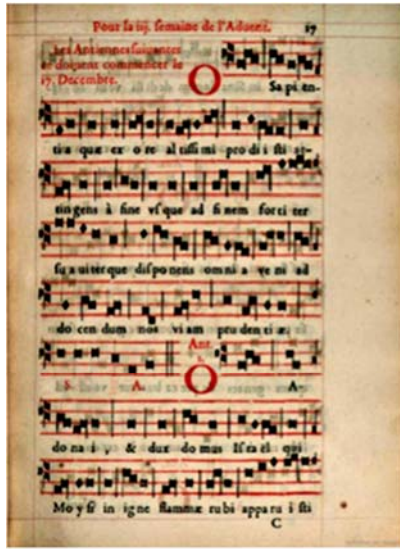 Pour la iij. semaine de l'Aduent. 17
Les Antiennes suiuantes
se doiuent commencer le
17. Decembre.
O Sa pi en-
ti a quæ ex o re al tissimi pro di i sti at-
tingens à fine vsque ad fi nem for ti ter
su a uiter que dis po nens om ni a ve ni ad
do cen dum nos vi am pru den ti æ.
S. A. Ant. O A-
do na i , & dux do mus Is ra el qui
Mo y si in ig ne flammæ ru bi appa ru i sti
C